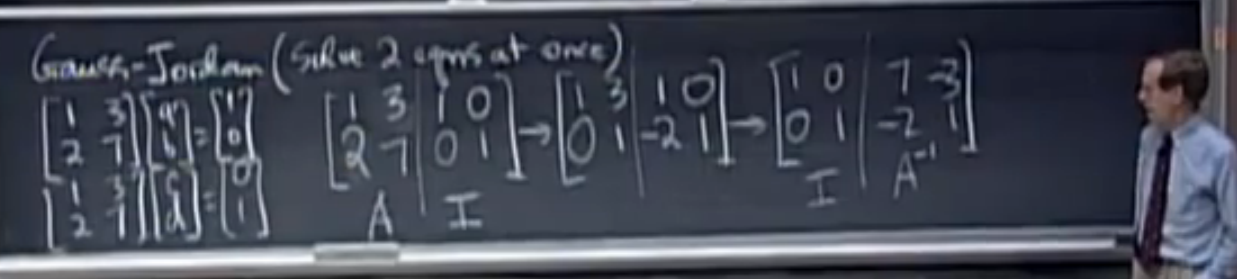 Gauss-Jordan (solve 2 eqns at once)
[1 3; 2 7][a; b] = [1; 0]
[1 3; 2 7][c; d] = [0; 1]
[1 3 | 1 0; 2 7 | 0 1] → [1 3 | 1 0; 0 1 | -2 1] → [1 0 | 7 -3; 0 1 | -2 1]
A I I A⁻¹